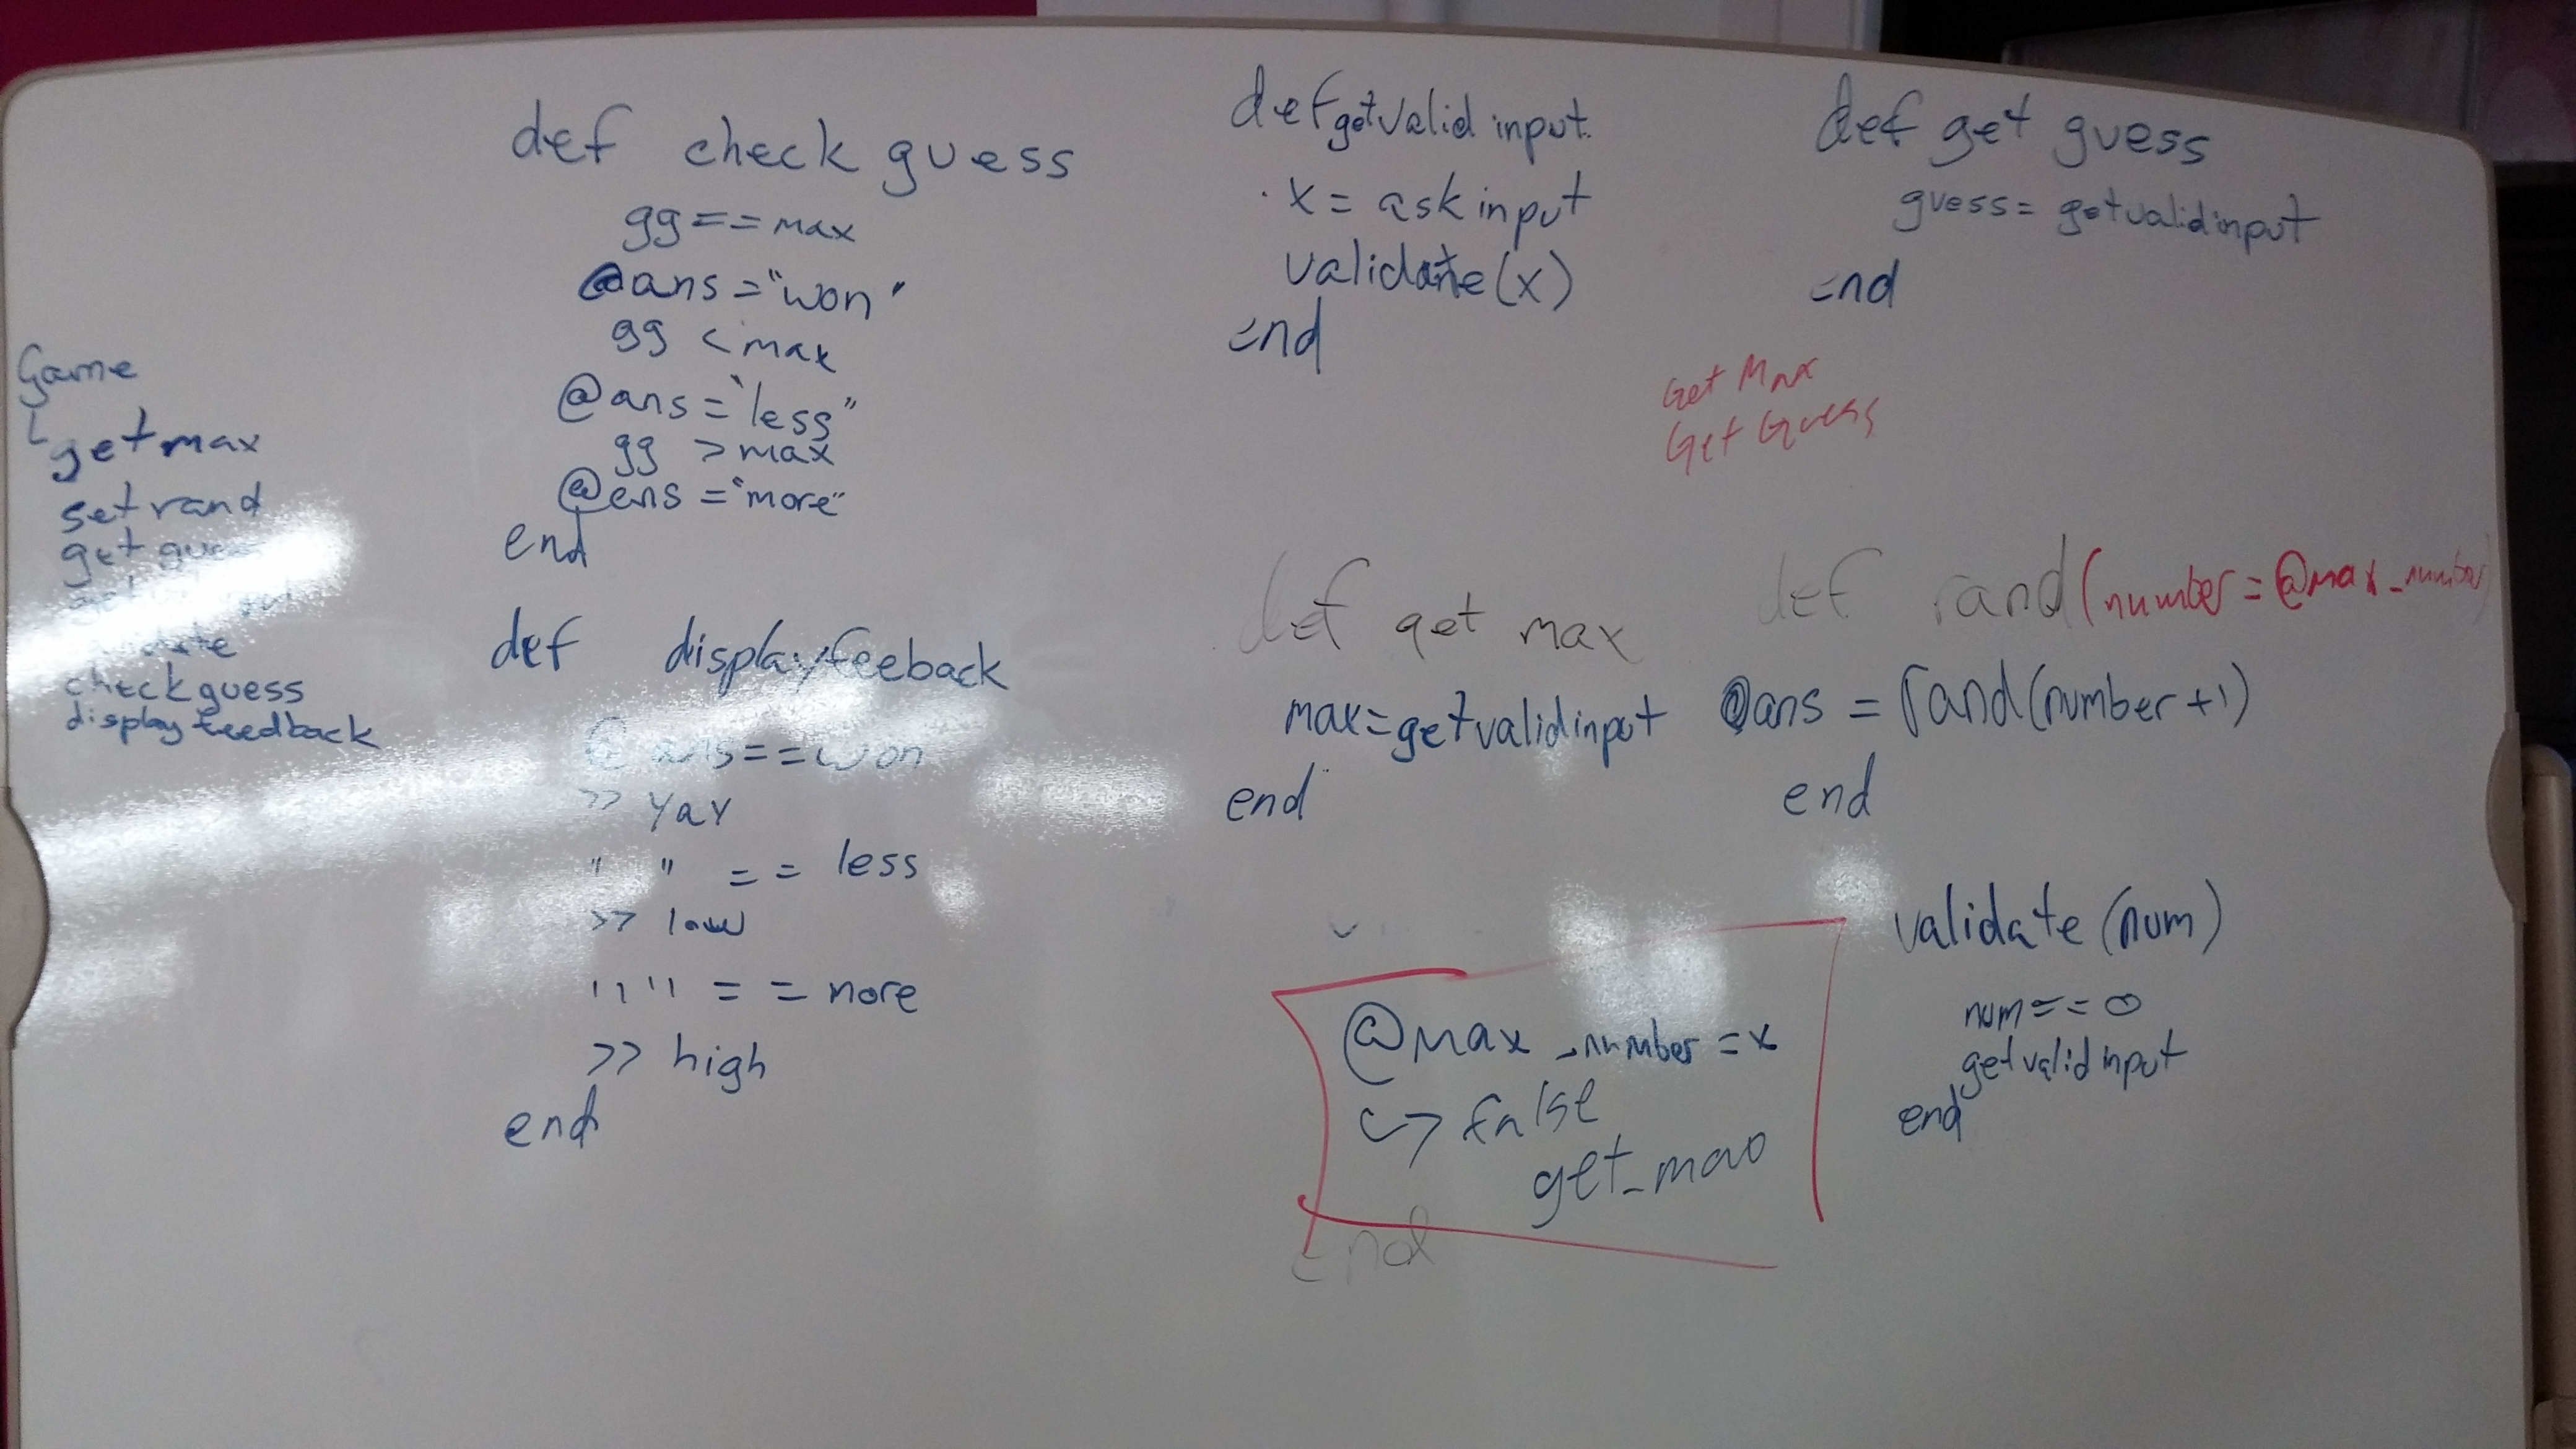 Game
getmax
set rand
get
checkguess
displayfeedback
def check guess
gg == max
@ans = "won"
gg < max
@ans = "less"
gg > max
@ans = "more"
end
def displayfeeback
@ans == won
>> yay
" " == less
>> low
" " == more
>> high
end
def getvalid input
x = ask input
validate(x)
end
def get guess
guess = getvalidinput
end
Get Max
Get Guess
def get max
max = getvalidinput
end
def rand(number = @max_number)
@ans = rand(number + 1)
end
@max_number = x
false
end
validate (num)
num == 0
getvalid input
end